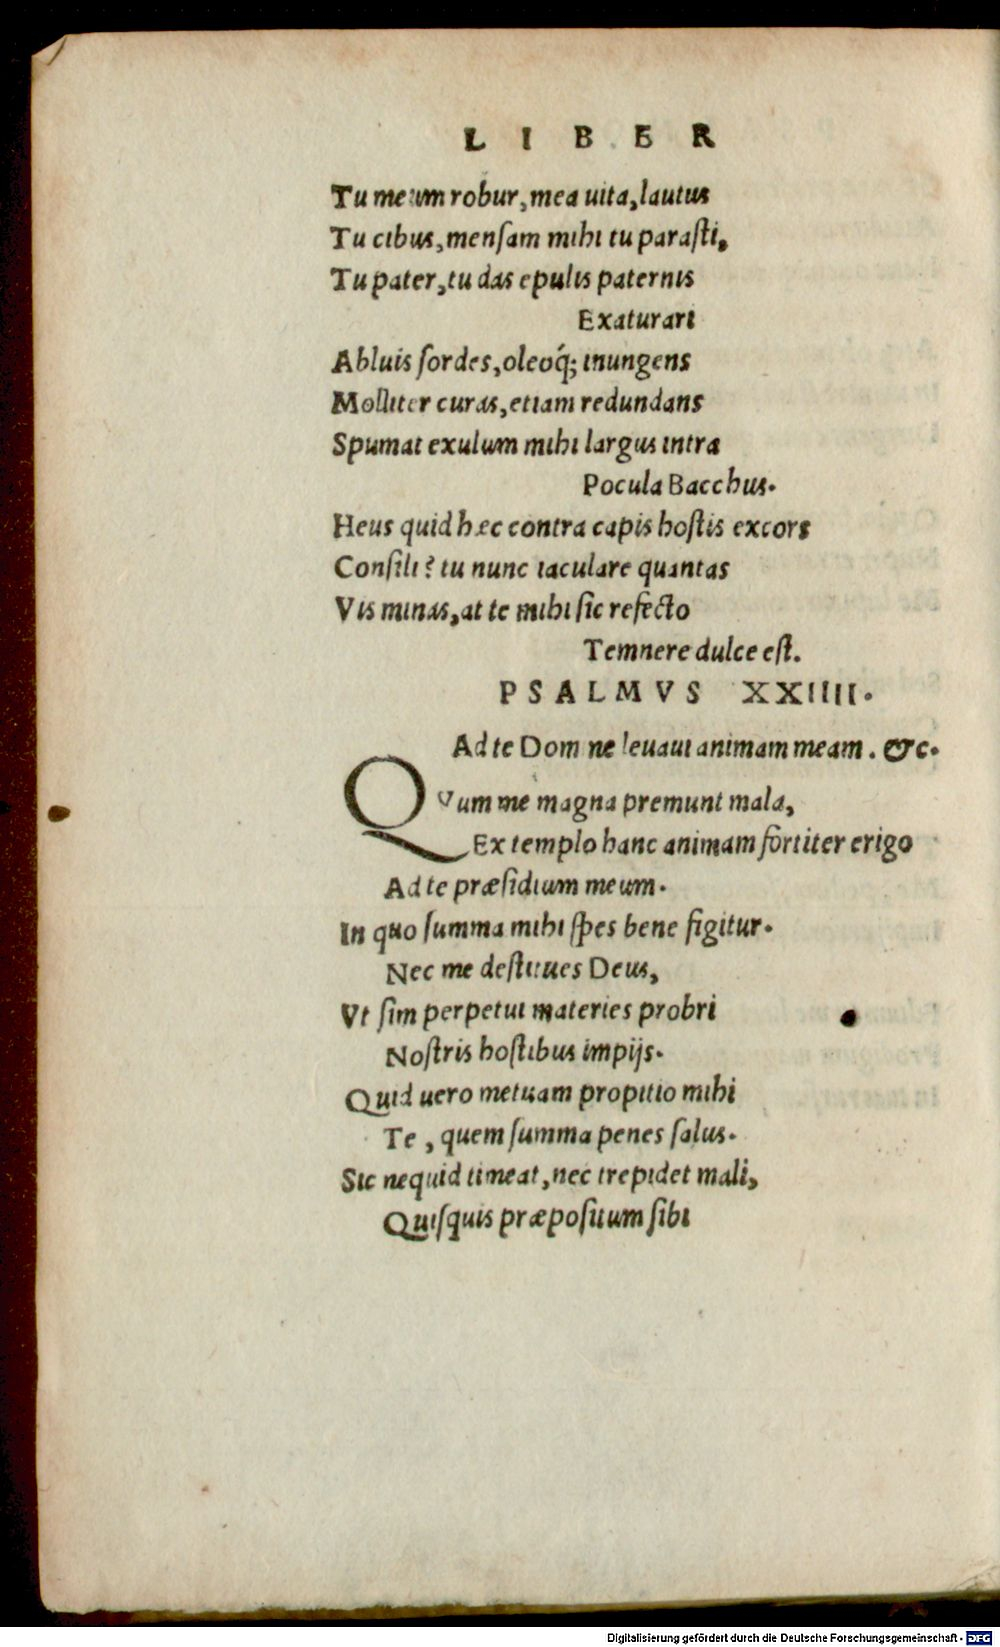 LIBER
Tu meum robur, mea uita, lautus
Tu cibus, menſam mihi tu paraſti,
Tu pater, tu das epulis paternis
Exaturari
Abluis ſordes, oleoq́; inungens
Molliter curas, etiam redundans
Spumat exulum mihi largus intra
Pocula Bacchus.
Heus quid hæc contra capis hoſtis excors
Conſili? tu nunc iaculare quantas
Vis minas, at te mihi ſic refecto
Temnere dulce eſt.
PSALMVS XXIIII.
Ad te Domine leuaui animam meam. &c.
QVum me magna premunt mala,
Ex templo hanc animam fortiter erigo
Ad te præſidium meum.
In quo ſumma mihi ſpes bene figitur.
Nec me deſtitues Deus,
Vt ſim perpetui materies probri
Noſtris hoſtibus impijs.
Quid uero metuam propitio mihi
Te, quem ſumma penes ſalus.
Sic nequid timeat, nec trepidet mali,
Quiſquis præpoſitum ſibi
Digitalisierung gefördert durch die Deutsche Forschungsgemeinschaft - DFG